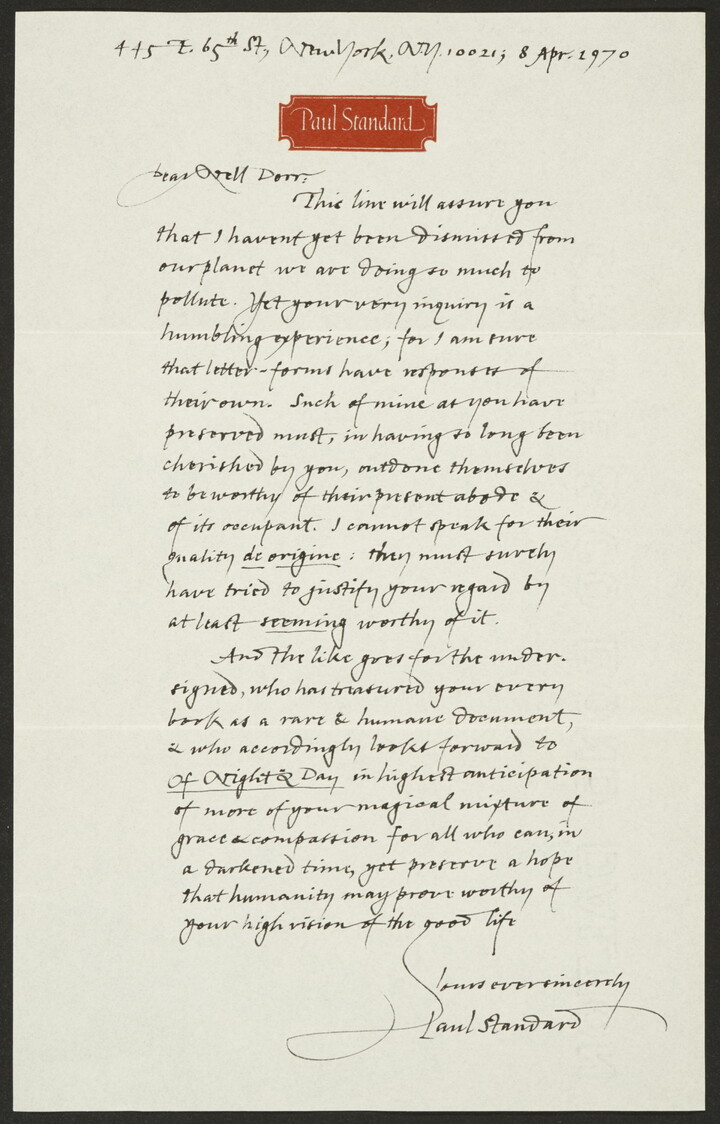 445 E. 65th St, New York, N.Y. 10021; 8 Apr. 1970
Paul Standard
Dear Nell Dorr:
This line will assure you
that I havent yet been dismissed from
our planet we are doing so much to
pollute. Yet your very inquiry is a
humbling experience; for I am sure
that letter-forms have responses of
their own. Such of mine as you have
preserved must, in having so long been
cherished by you, outdone themselves
to be worthy of their present abode &
of its occupant. I cannot speak for their
quality de origine: they must surely
have tried to justify your regard by
at least seeming worthy of it.
And the like goes for the under-
signed, who has treasured your every
book as a rare & humane document,
& who accordingly looks forward to
Of Night & Day in highest anticipation
of more of your magical mixture of
grace & compassion for all who can, in
a darkened time, yet preserve a hope
that humanity may prove worthy of
your high vision of the good life
Yours ever sincerely
Paul Standard